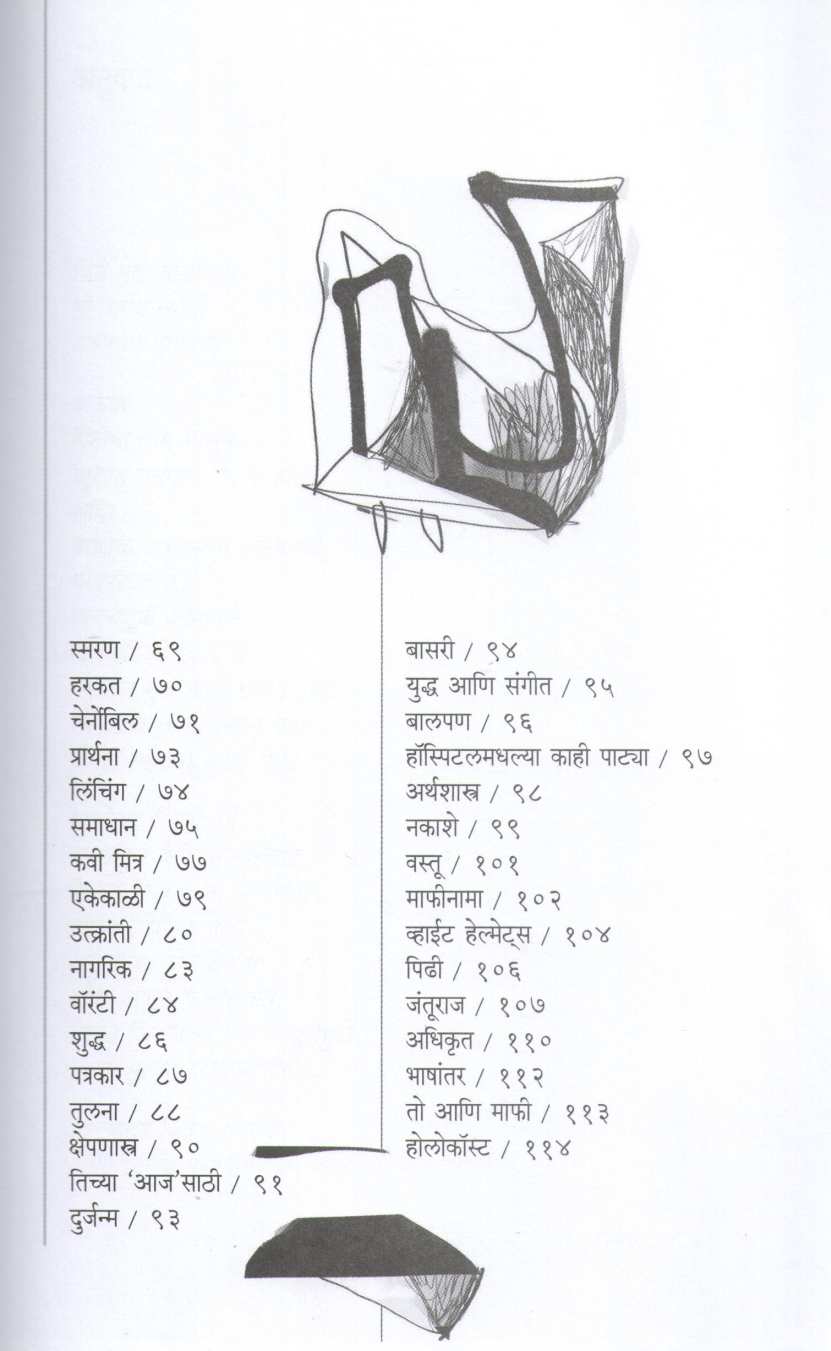 स्मरण / ६९
हरकत / ७०
चेर्नोबिल / ७१
प्रार्थना / ७३
लिंचिंग / ७४
समाधान / ७५
कवी मित्र / ७७
एकेकाळी / ७९
उत्क्रांती / ८०
नागरिक / ८३
वॉरंटी / ८४
शुद्ध / ८६
पत्रकार / ८७
तुलना / ८८
क्षेपणास्त्र / ९०
तिच्या ‘आज’साठी / ९१
दुर्जन्म / ९३
बासरी / ९४
युद्ध आणि संगीत / ९५
बालपण / ९६
हॉस्पिटलमधल्या काही पाट्या / ९७
अर्थशास्त्र / ९८
नकाशे / ९९
वस्तू / १०१
माफीनामा / १०२
व्हाईट हेल्मेट्स / १०४
पिढी / १०६
जंतूराज / १०७
अधिकृत / ११०
भाषांतर / ११२
तो आणि माफी / ११३
होलोकॉस्ट / ११४